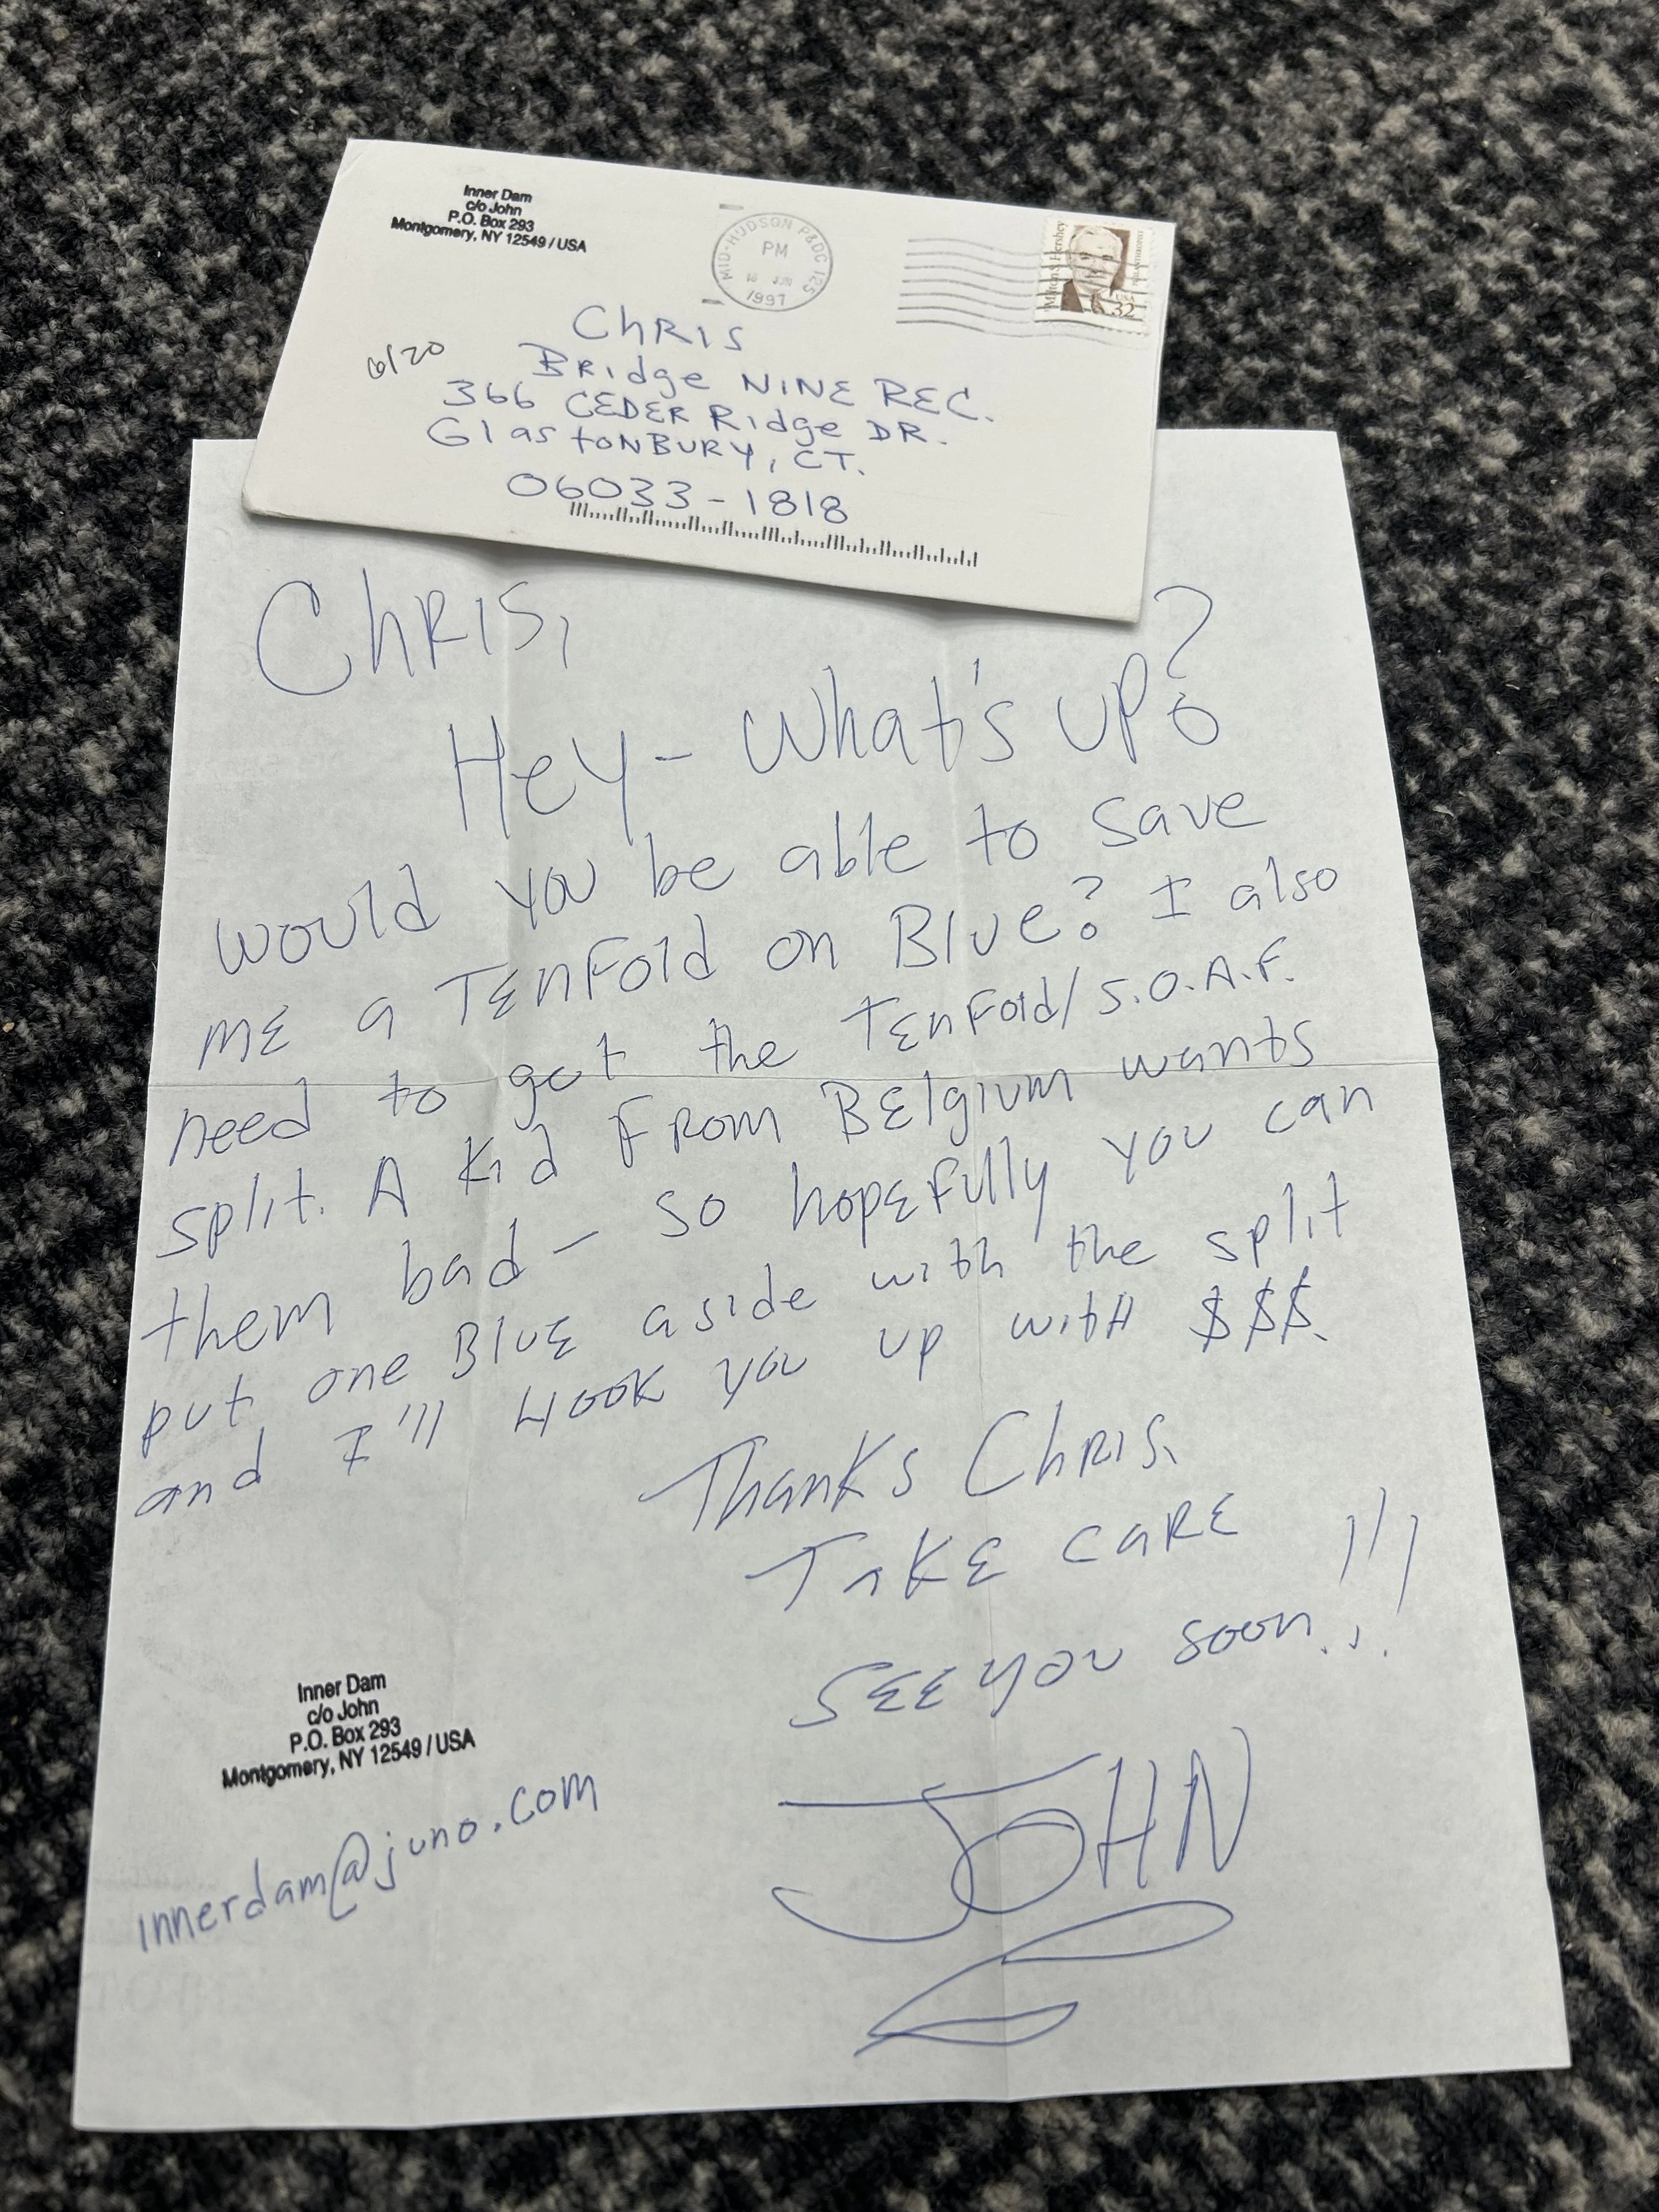 Inner Dam
c/o John
P.O. Box 293
Montgomery, NY 12549 / USA
MID-HUDSON P&DC 125
PM
JUN
1997
Milton S. Hershey
USA
32
6/20
ChRIS
BRidge NINE REC.
366 CEDER Ridge DR.
GlastONBURY, CT.
06033-1818
ChRIS,
Hey- What's up?
would you be able to save
me a Tenfold on Blue? I also
need to get the Tenfold/S.O.A.F.
split. A kid from Belgium wants
them bad - so hopefully you can
put one Blue aside with the split
and I'll HOOK you up with $$$.
Thanks ChRIS.
Take care
See you soon..!!!
JOHN
Inner Dam
c/o John
P.O. Box 293
Montgomery, NY 12549 / USA
innerdam@juno.com